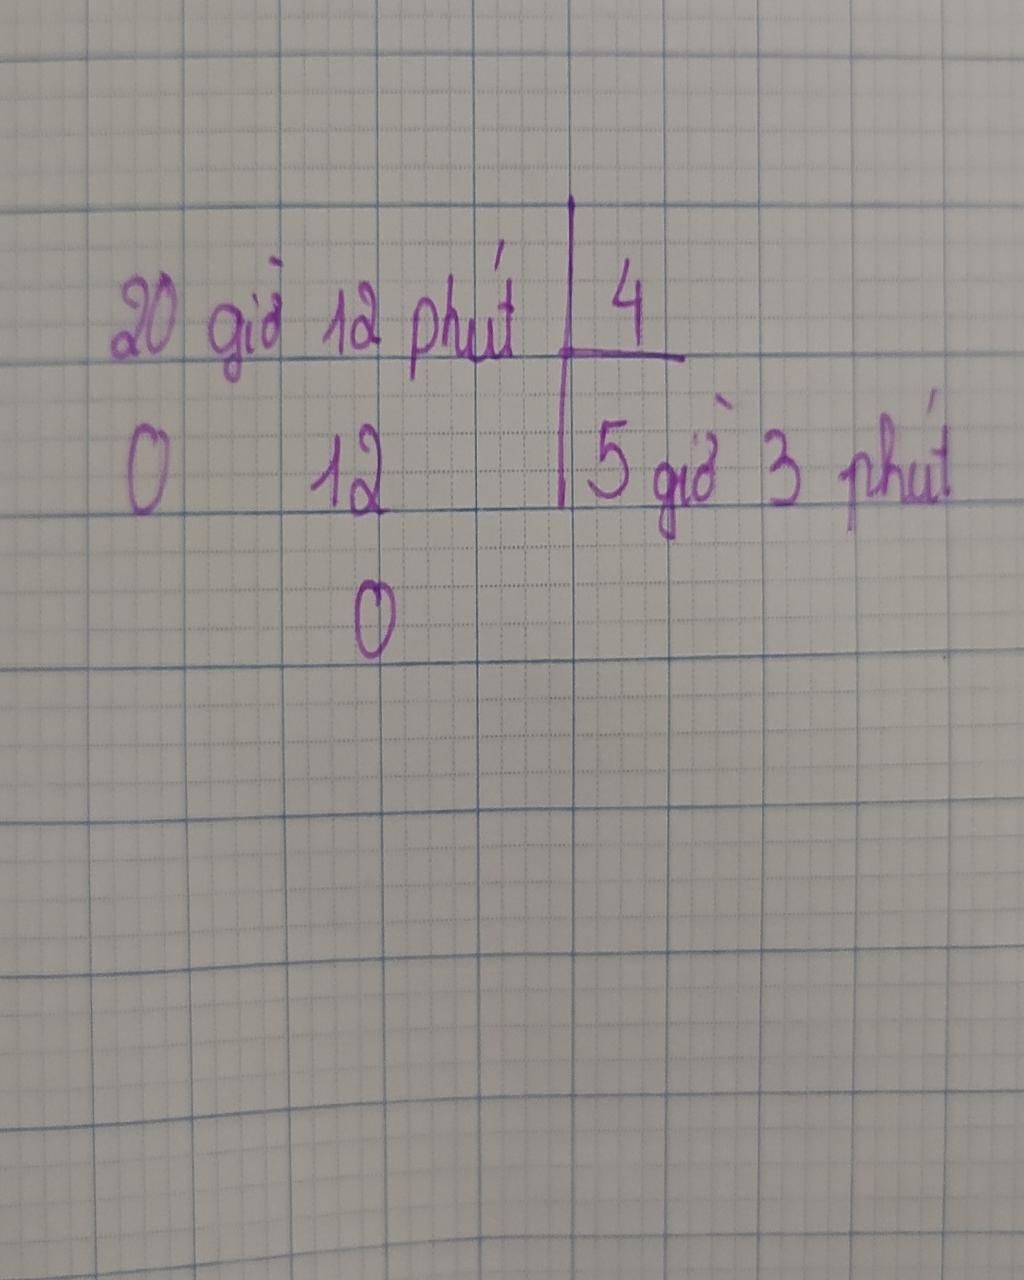 20 giờ 12 phút 4
0 12 5 giờ 3 phút
0